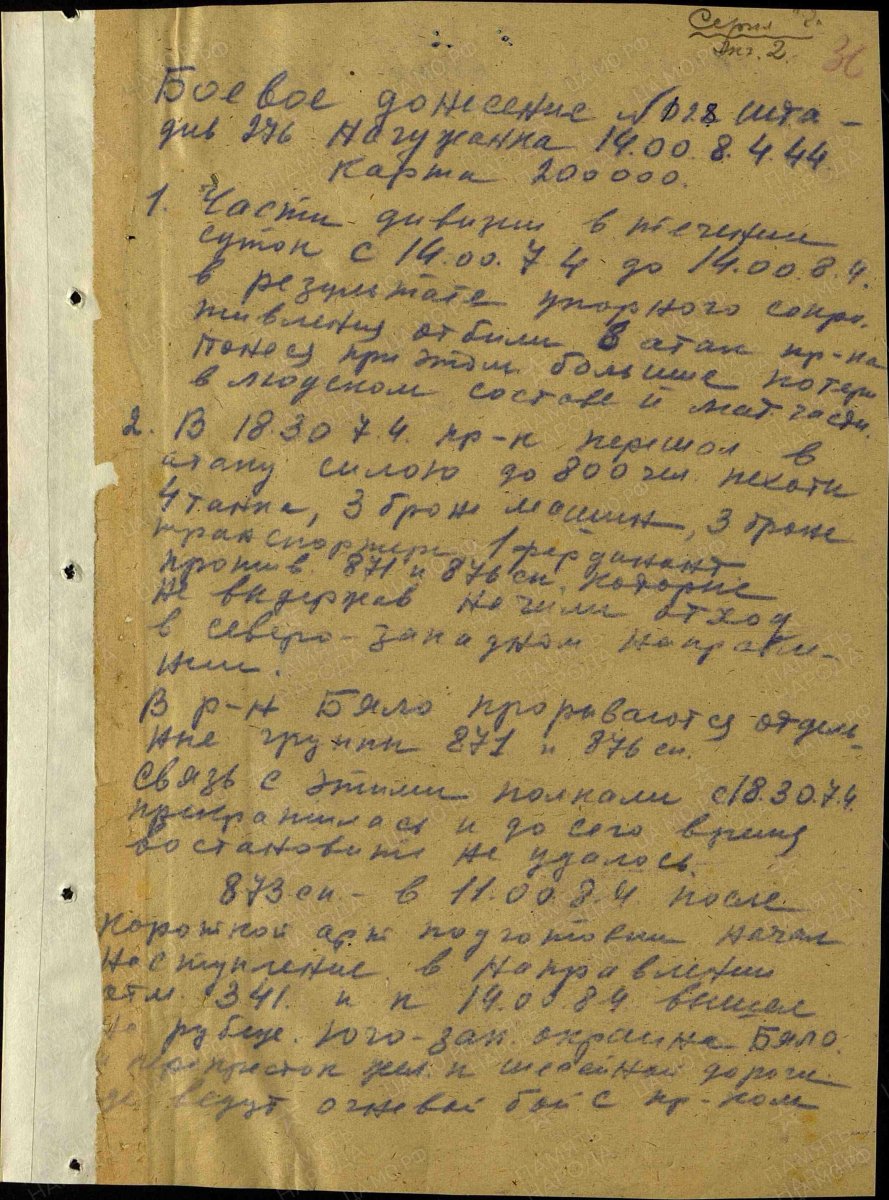 Серия
Экз. 2.
36
Боевое донесение № 028 шта-
див 276 Нагужанка 14.00. 8.4.44
Карта 200000.
1. Части дивизии в течении
суток с 14.00. 7.4 до 14.00. 8.4.
в результате упорного сопро-
тивления отбили 8 атак пр-ка
понеся при этом большие потери
в людском составе и мат части.
2. В 18.30 7.4. пр-к перешол в
атаку силою до 800 чел. пехоты
4 танка, 3 броне машин, 3 броне
транспортера, 1
против 871 и 876 сп. которые
не выдержав начали отход
в северо-западном направле-
нии.
В р-н Бяло прорываются отдель-
ные группы 871 и 876 сп.
Связь с этими полками с 18.30 7.4.
прекратилась и до сего время
востановить не удалось.
873 сп - в 11.00 8.4 после
короткой арт подготовки начал
наступление в направлении
отм. 341. и к 14.00 8.4 вышел
на рубеж. юго-зап. окраина Бяло.
и перекресток жел. и шосейной дороги
где ведут огневой бой с пр-ком